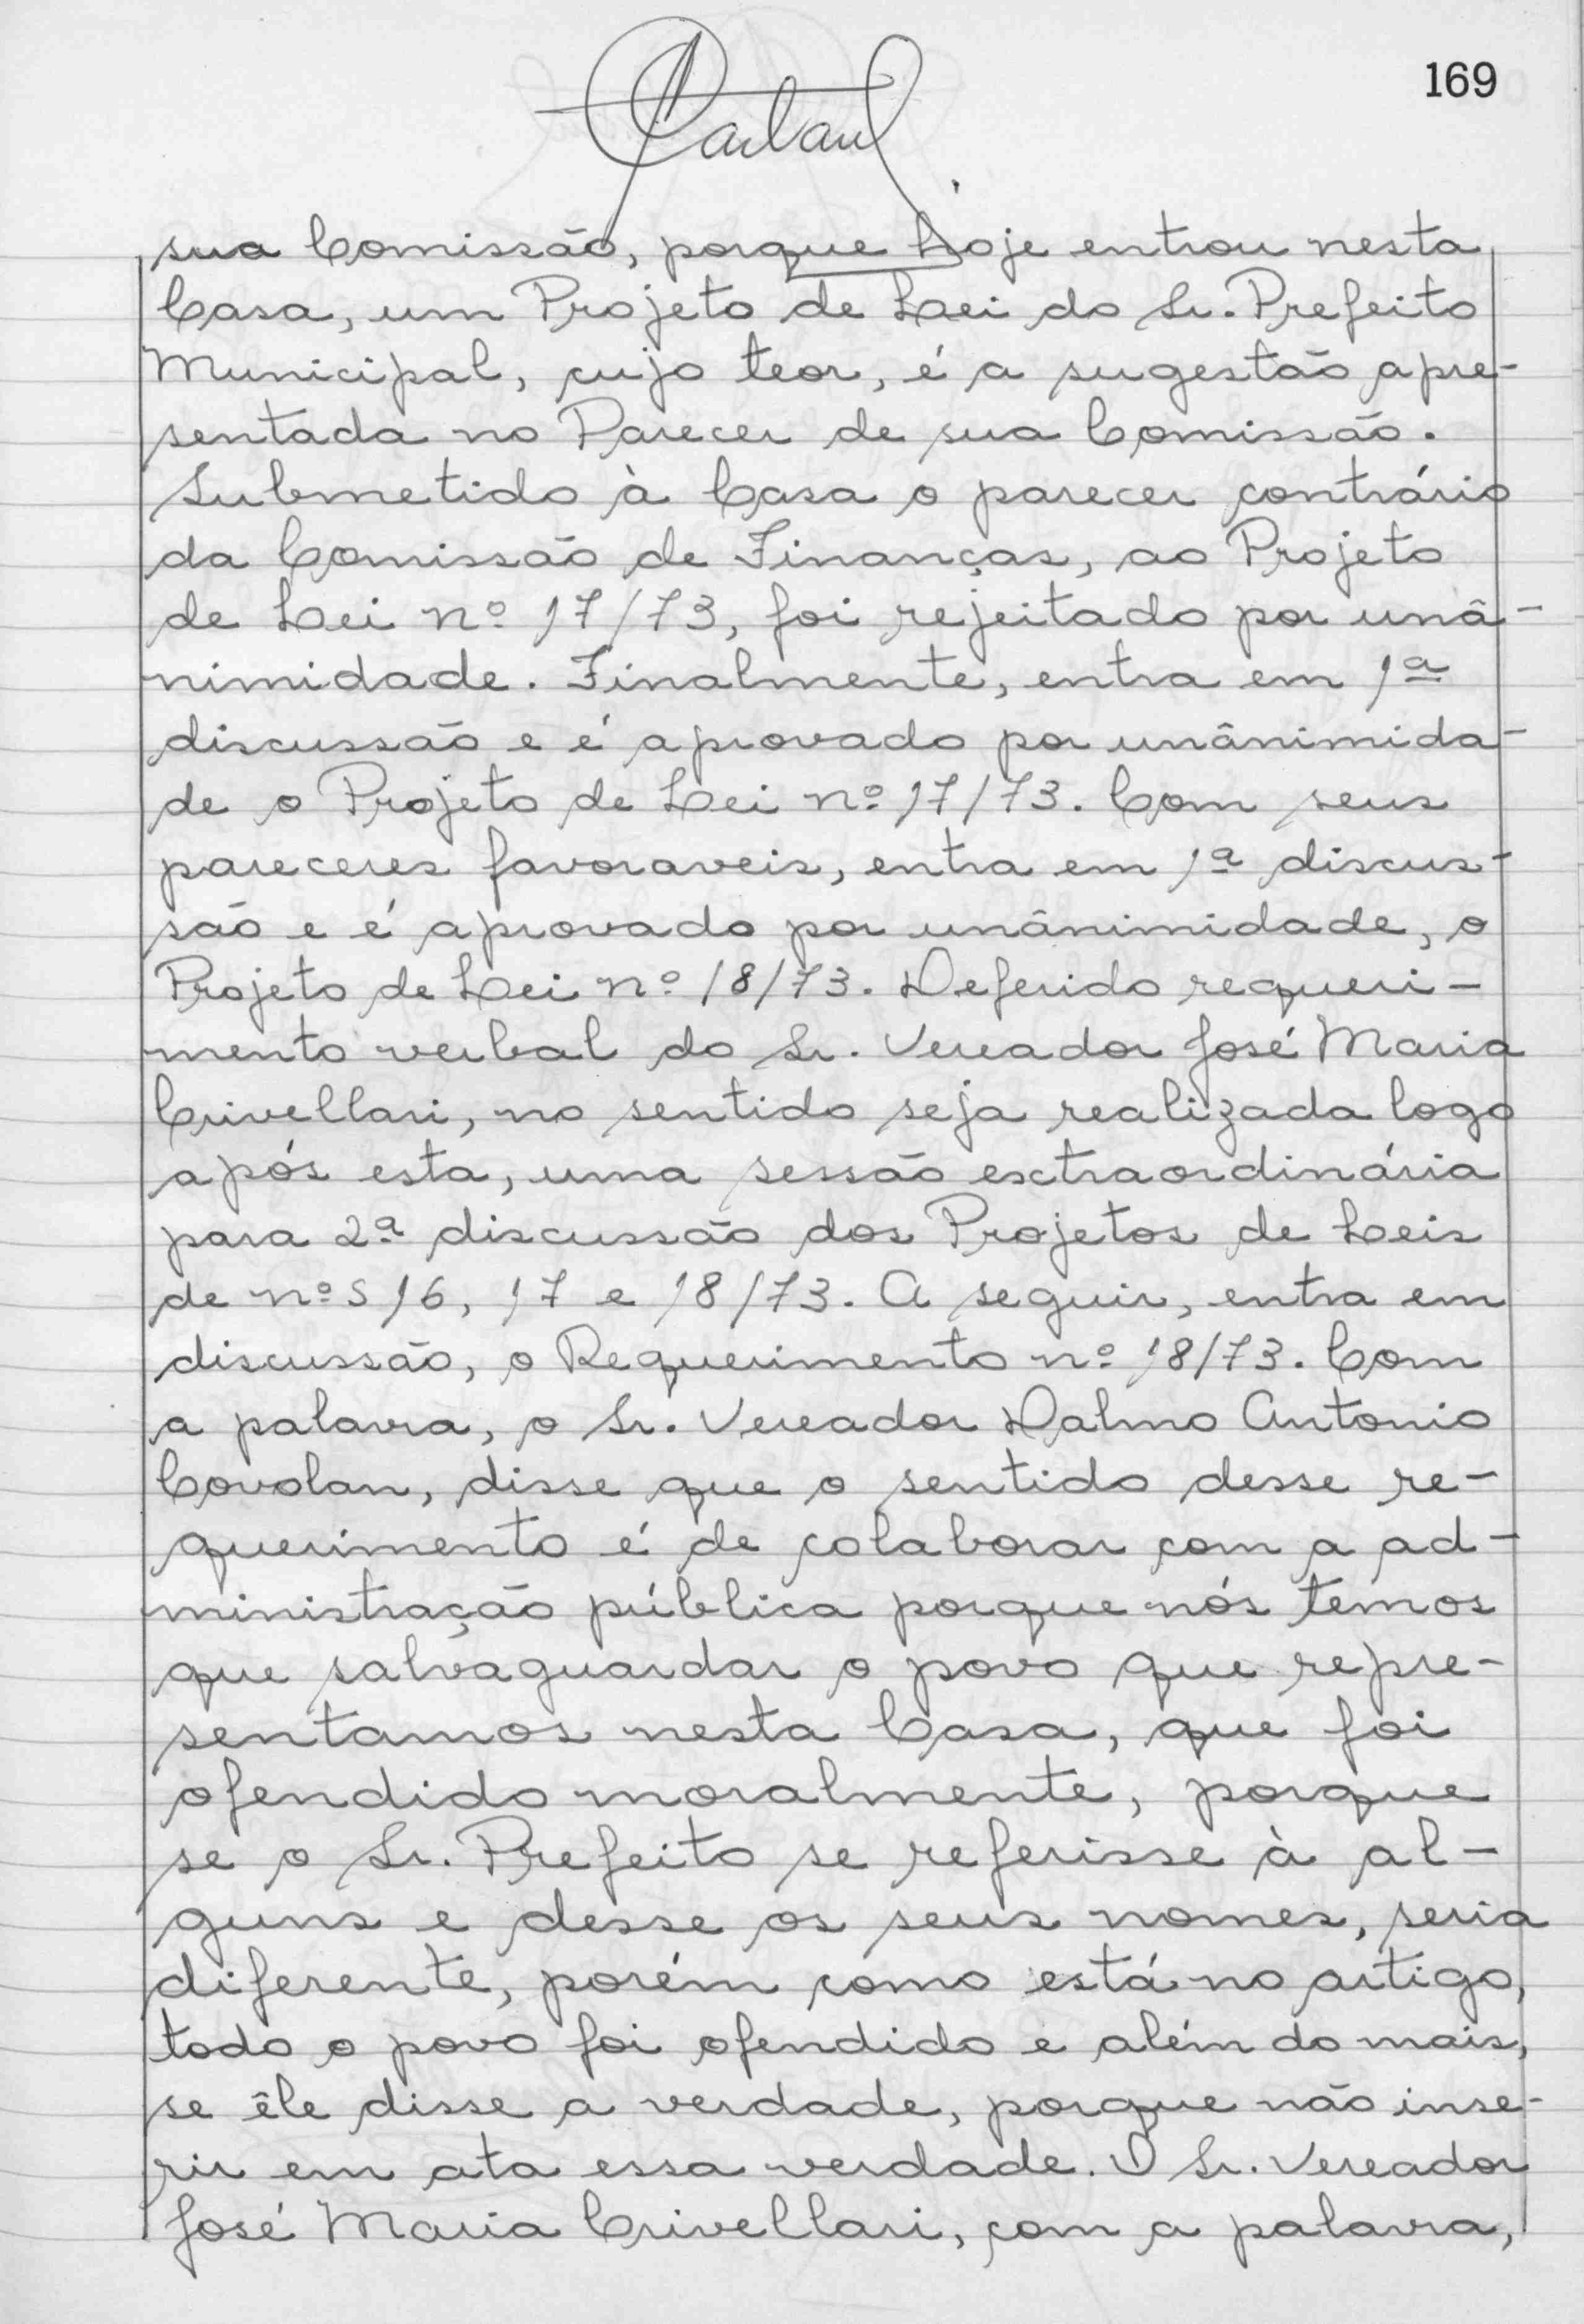 169
sua Comissão, porque hoje entrou nesta
Casa, um Projeto de Lei do Sr. Prefeito
Municipal, cujo teor, é a sugestão apre-
sentada no Parecer de sua Comissão.
Submetido à Casa o parecer contrário
da Comissão de Finanças, ao Projeto
de Lei nº 17/73, foi rejeitado por unâ-
nimidade. Finalmente, entra em 1ª
discussão e é aprovado por unânimida-
de o Projeto de Lei nº 17/73. Com seus
pareceres favoraveis, entra em 1ª discus-
são e é aprovado por unânimidade, o
Projeto de Lei nº 18/73. Deferido requeri-
mento verbal do Sr. Vereador José Maria
Crivellari, no sentido seja realizada logo
após esta, uma sessão extraordinária
para 2ª discussão dos Projetos de Leis
de nºs 16, 17 e 18/73. A seguir, entra em
discussão, o Requerimento nº 18/73. Com
a palavra, o Sr. Vereador Dalmo Antonio
Covolan, disse que o sentido desse re-
querimento é de colaborar com a ad-
ministração pública porque nós temos
que salvaguardar o povo que repre-
sentamos nesta Casa, que foi
ofendido moralmente, porque
se o Sr. Prefeito se referisse à al-
guns e desse os seus nomes, seria
diferente, porém como está no artigo,
todo o povo foi ofendido e além do mais,
se êle disse a verdade, porque não inse-
rir em ata essa verdade. O Sr. Vereador
José Maria Crivellari, com a palavra,